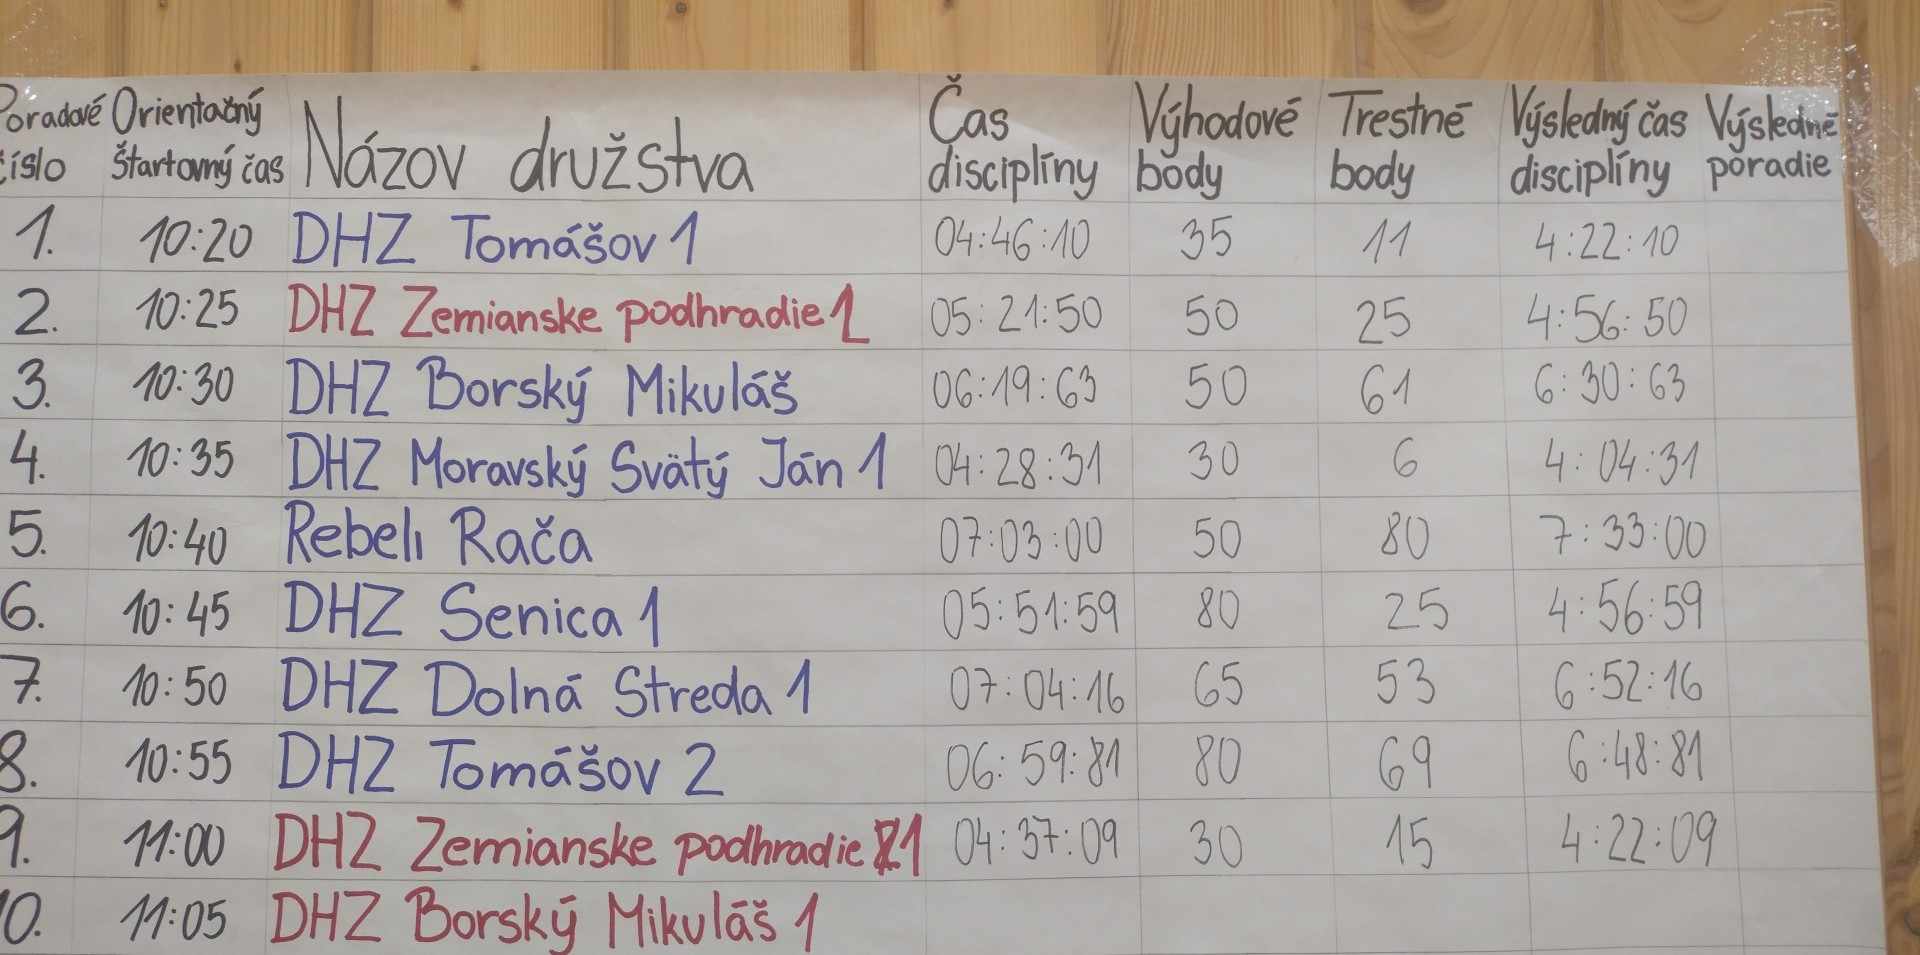 Poradové číslo Orientačný Štartovný čas Názov družstva Čas disciplíny Výhodové body Trestné body Výsledný čas disciplíny Výsledné poradie
1. 10:20 DHZ Tomášov 1 04:46:10 35 11 4:22:10
2. 10:25 DHZ Zemianske podhradie 2 05:21:50 50 25 4:56:50
3. 10:30 DHZ Borský Mikuláš 06:19:63 50 61 6:30:63
4. 10:35 DHZ Moravský Svätý Ján 1 04:28:31 30 6 4:04:31
5. 10:40 Rebeli Rača 07:03:00 50 80 7:33:00
6. 10:45 DHZ Senica 1 05:51:59 80 25 4:56:59
7. 10:50 DHZ Dolná Streda 1 07:04:16 65 53 6:52:16
8. 10:55 DHZ Tomášov 2 06:59:81 80 69 6:48:81
9. 11:00 DHZ Zemianske podhradie 1 04:37:09 30 15 4:22:09
10. 11:05 DHZ Borský Mikuláš 1